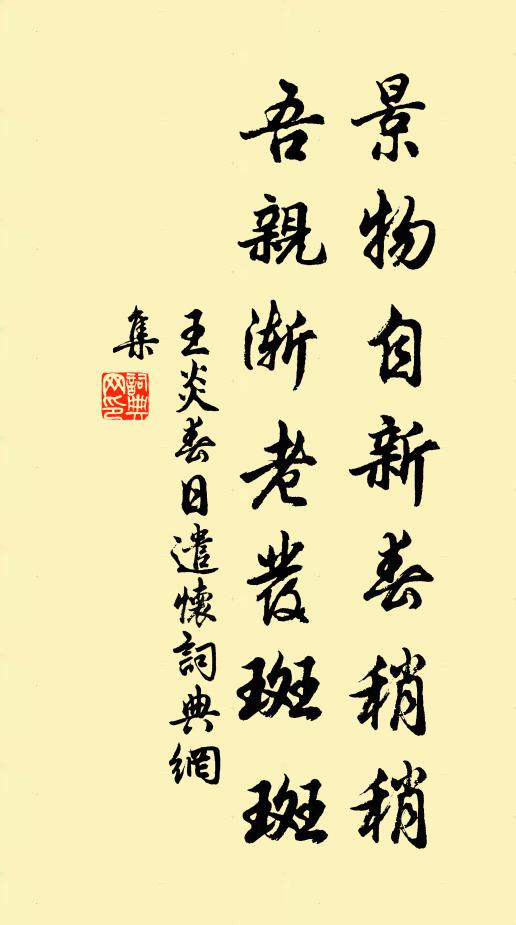 景物自新春稍稍
吾親漸老發斑斑
王炎春日遣懷詞典網
集
詞典
网印